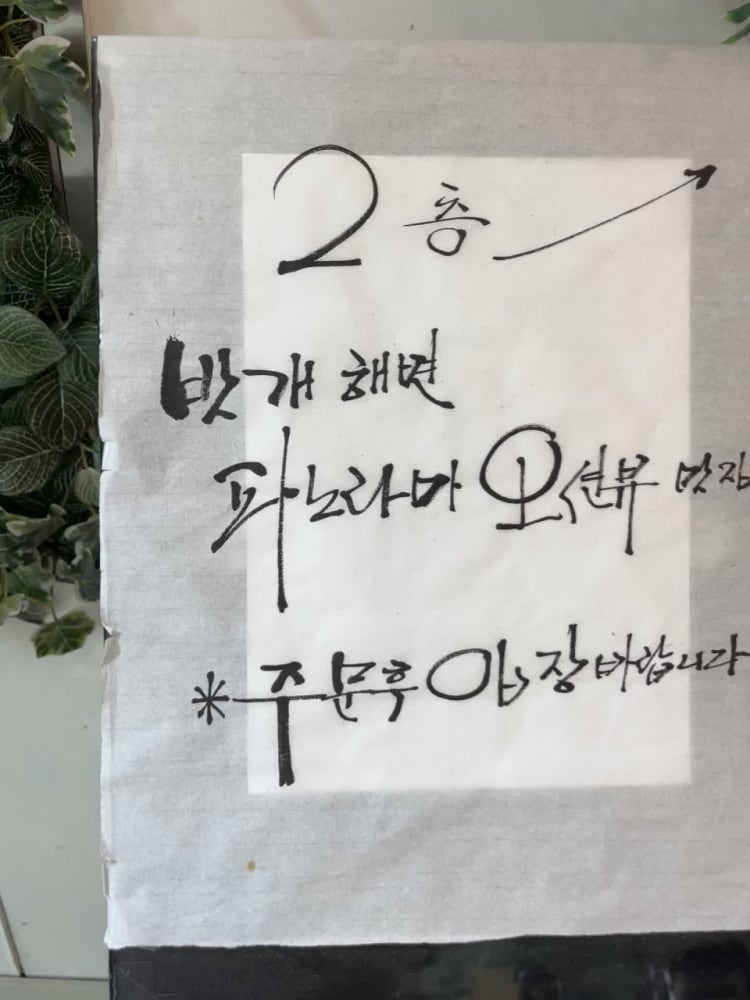 2층
밧개 해변
파노라마 오션뷰 맛집
*주문후 입장 바랍니다